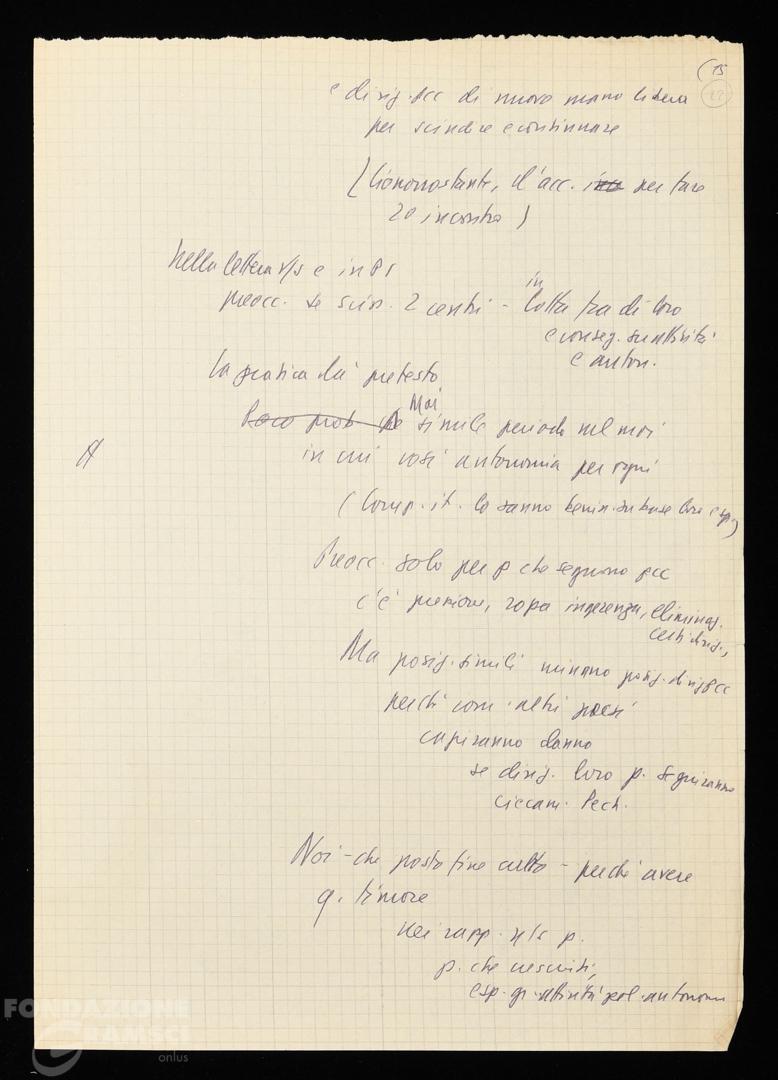 (15
e dirig. pcc di nuovo mano libera
per scindere e continuare
(Ciononostante, d'acc. per fare
2º incontro)
nella lettera v/s e in Ps
preocc. se sciss. 2 centri - in lotta tra di loro
e conseg. su attività
e auton.
La pratica dà pretesto
Mai simile periodo nel moi
in cui così autonomia per ogni
(Comp. it. lo sanno benin. su base loro esp.)
Preocc. solo per p che seguono pcc
c'è pressione, rozza ingerenza, eliminaz.
certi dirig.,
Ma posiz. simili minano posiz. dirig pcc
perché com. altri paesi
capiranno danno
se dirig. loro p. seguiranno
ciecam. Pech.
Noi - che posto fine culto - perché avere
q. timore
nei rapp. n/s p.
p. che cresciuti,
esp. gr. attività pol. autonoma
FONDAZIONE
GRAMSCI
onlus